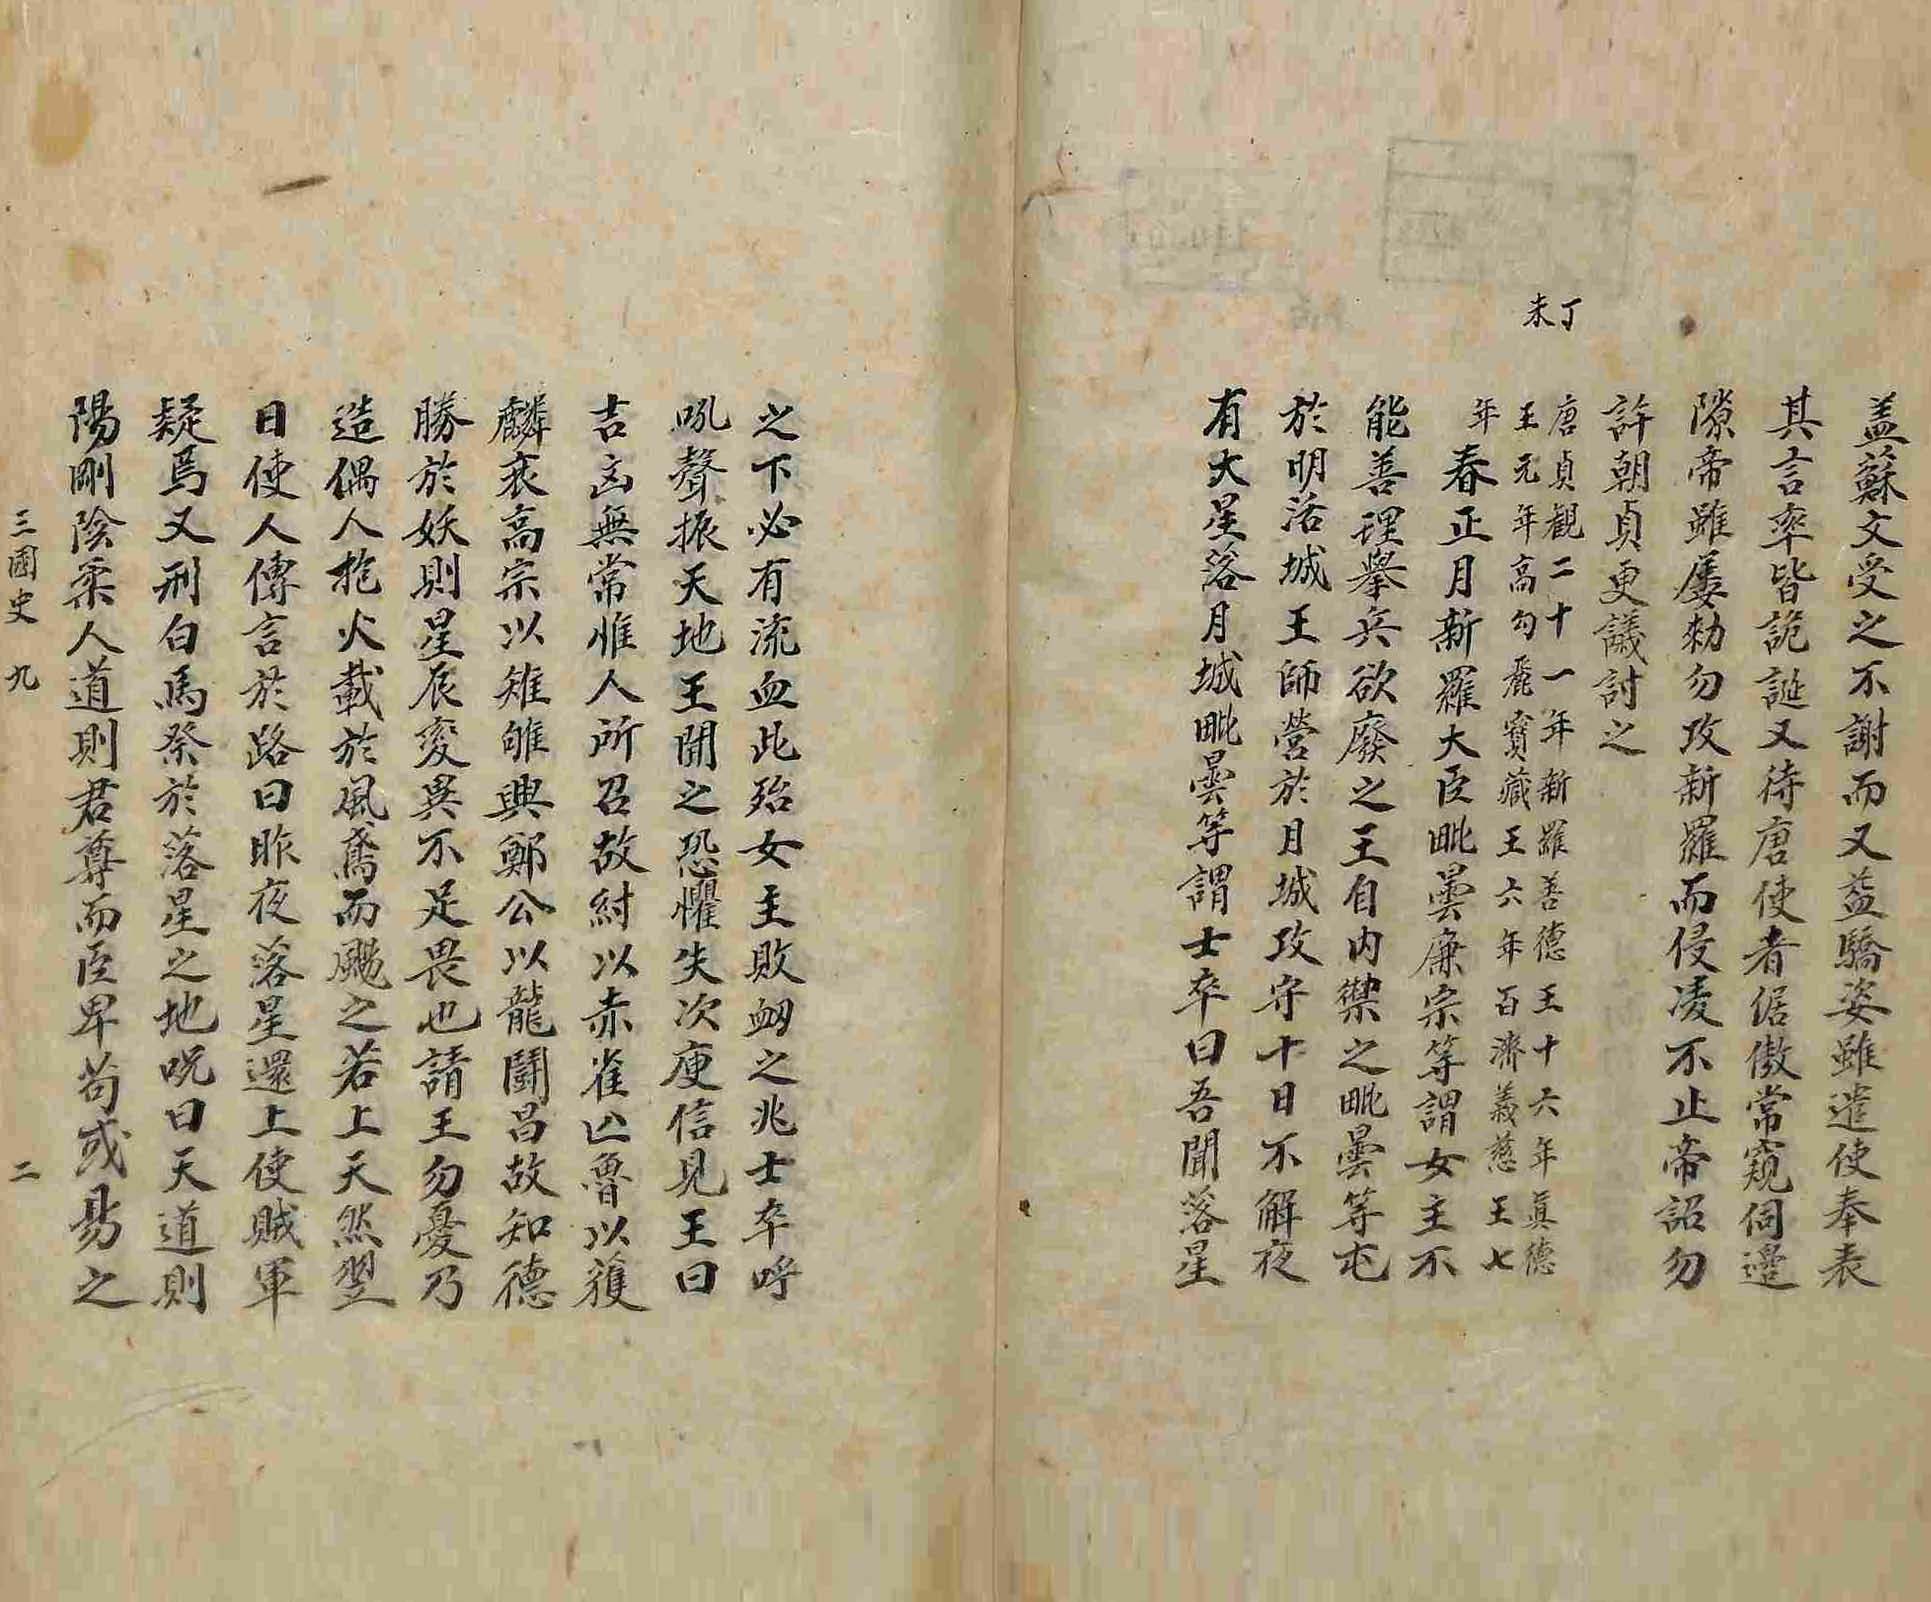 盖蘇文受之不謝而又益驕姿雖遣使奉表
其言率皆詭誕又待唐使者倨傲常窺伺邊
隙帝雖屢勑勿攻新羅而侵凌不止帝詔勿
許朝貞更議討之
丁未
唐貞觀二十一年新羅善德王十六年眞德
王元年高勾麗寶藏王六年百濟義慈王七
年
春正月新羅大臣毗曇廉宗等謂女主不
能善理擧兵欲廢之王自内禦之毗曇等屯
於明活城王師營於月城攻守十日不解夜
有大星落月城毗曇等謂士卒曰吾聞落星
之下必有流血此殆女主敗衂之兆士卒呼
吼聲振天地王聞之恐懼失次庾信見王曰
吉凶無常惟人所召故紂以赤雀亾魯以獲
麟衰高宗以雉雊興鄭公以龍鬪昌故知德
勝於妖則星辰變異不足畏也請王勿憂乃
造偶人抱火載於風鳶而颺之若上天然翌
日使人傳言於路曰昨夜落星還上使賊軍
疑焉又刑白馬祭於落星之地呪曰天道則
陽剛陰柔人道則君尊而臣卑苟或易之
三國史 九 二